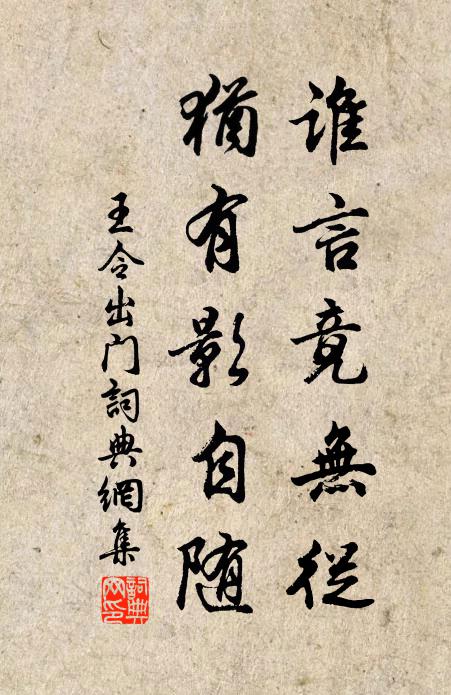 誰言竟無從
猶有影自隨
王令出门詞典網集
詞典網印